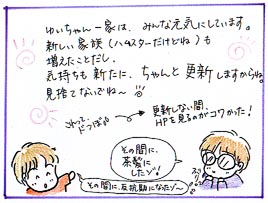 ゆいちゃん一家は、みんな元気にしています。
新しい家族(ハムスターだけどね)も
増えたことだし、
気持ちも新たに、ちゃんと更新しますからね。
見捨てないでね〜
更新しない間、
HPを見るのがコワかった!
その間に、
茶髪に
したゾ!
その間に、反抗期になったゾ〜